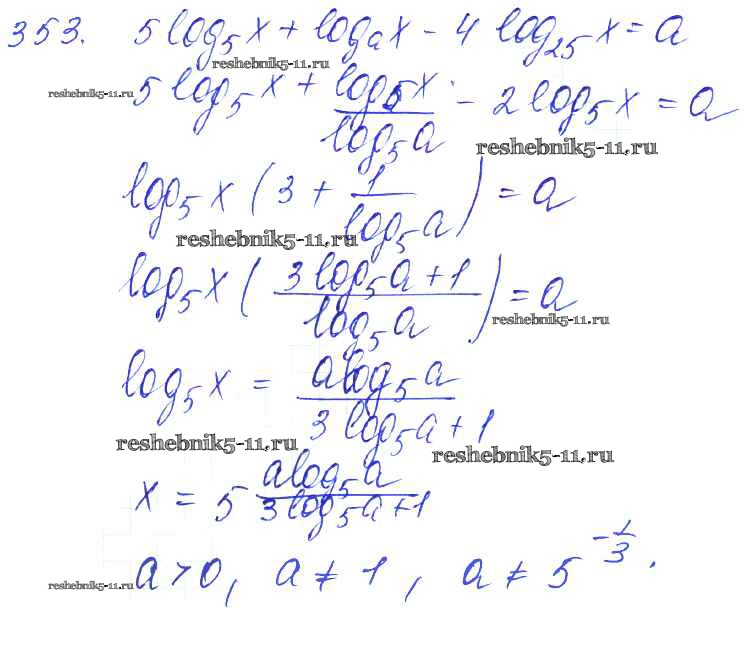 353. 5 log₅ x + logₐ x - 4 log₂₅ x = a
reshebnik5-11.ru
5 log₅ x + log₅ x / log₅ a - 2 log₅ x = a
reshebnik5-11.ru
reshebnik5-11.ru
log₅ x (3 + 1 / log₅ a) = a
reshebnik5-11.ru
log₅ x (3 log₅ a + 1 / log₅ a) = a
reshebnik5-11.ru
log₅ x = a log₅ a / 3 log₅ a + 1
reshebnik5-11.ru
reshebnik5-11.ru
x = 5^(a log₅ a / 3 log₅ a + 1)
reshebnik5-11.ru a > 0, a ≠ 1, a ≠ 5^(-1/3).